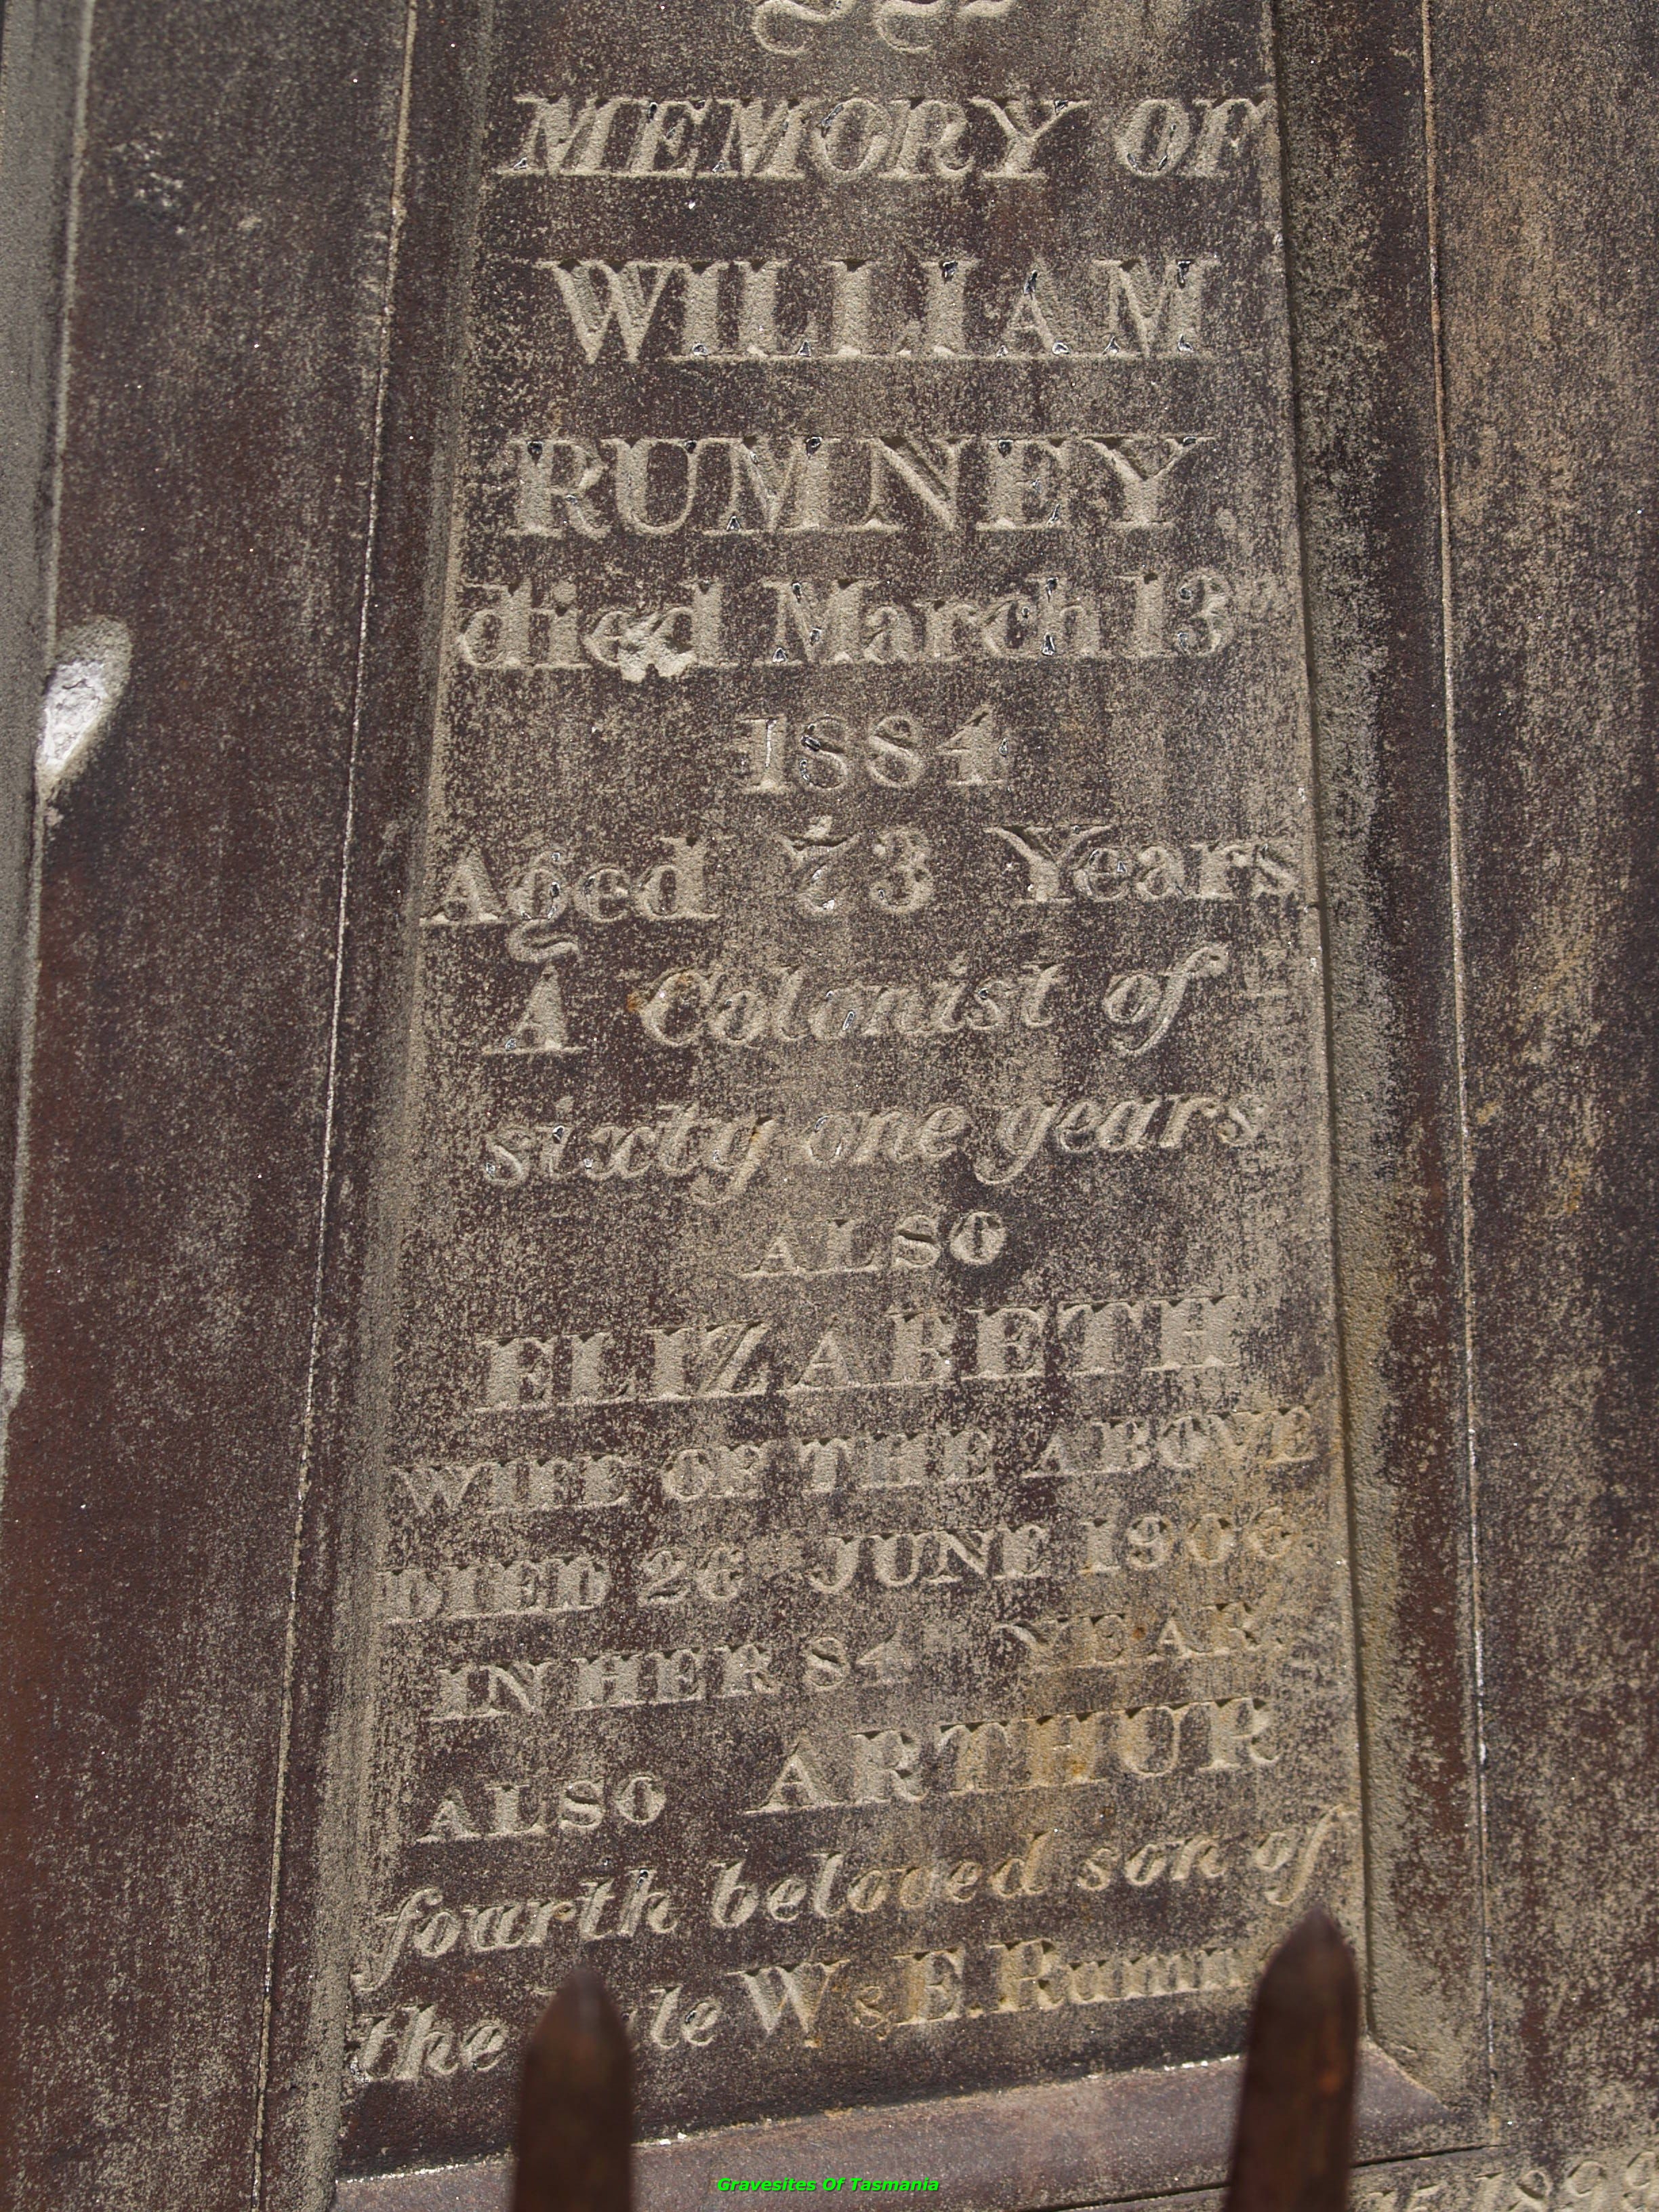 MEMORY OF
WILLIAM
RUMNEY,
died March 13th
1884
Aged 73 Years
A Colonist of
sixty one years
ALSO
ELIZABETH
WIFE OF THE ABOVE
DIED 26 JUNE 1906
IN HER 84 YEAR.
ALSO ARTHUR
fourth beloved son of
the W & E. Rumn
Gravesites Of Tasmania